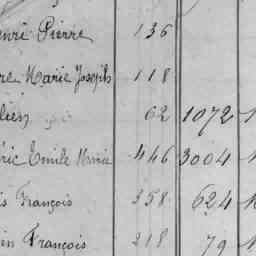 enri Pierre 136
re Marie Joseph 118
lien 62 1072
éric Emile Marie 446 3004
is François 358 624
in François 218 79